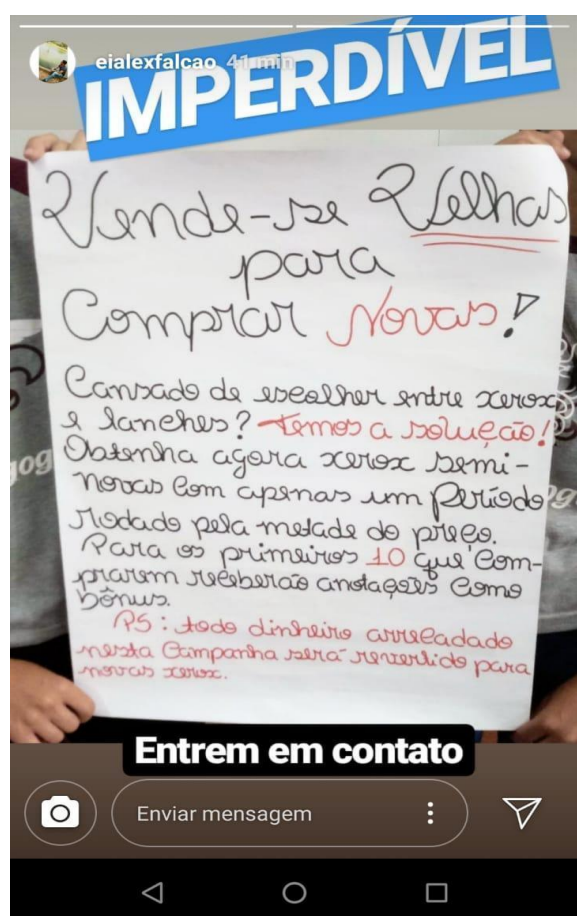 eialexfalcao 41 min
IMPERDÍVEL
Vende-se Velhas
para
Comprar Novas!
Cansado de escolher entre xerox
e lanches? Temos a solução!
Obtenha agora xerox semi-
novas com apenas um Período
rodado pela metade do preço.
Para os primeiros 10 que com-
prarem receberão anotações como
bônus.
PS: todo dinheiro arrecadado
nesta Campanha será revertido para
novas xerox.
Entrem em contato
Enviar mensagem